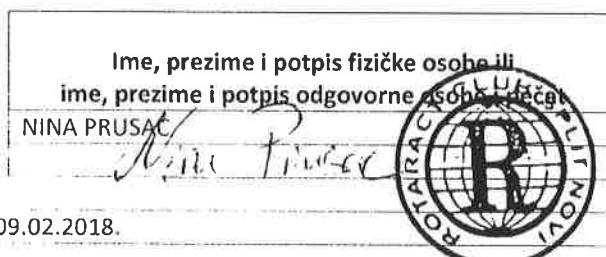 Ime, prezime i potpis fizičke osobe ili
ime, prezime i potpis odgovorne osobe i pečat
NINA PRUSAC
Nina Prusac
ROTARACT CLUB SPLIT NOVI
R
09.02.2018.